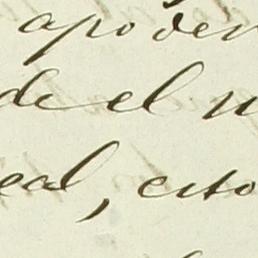 apoder
de el u
eal, esto